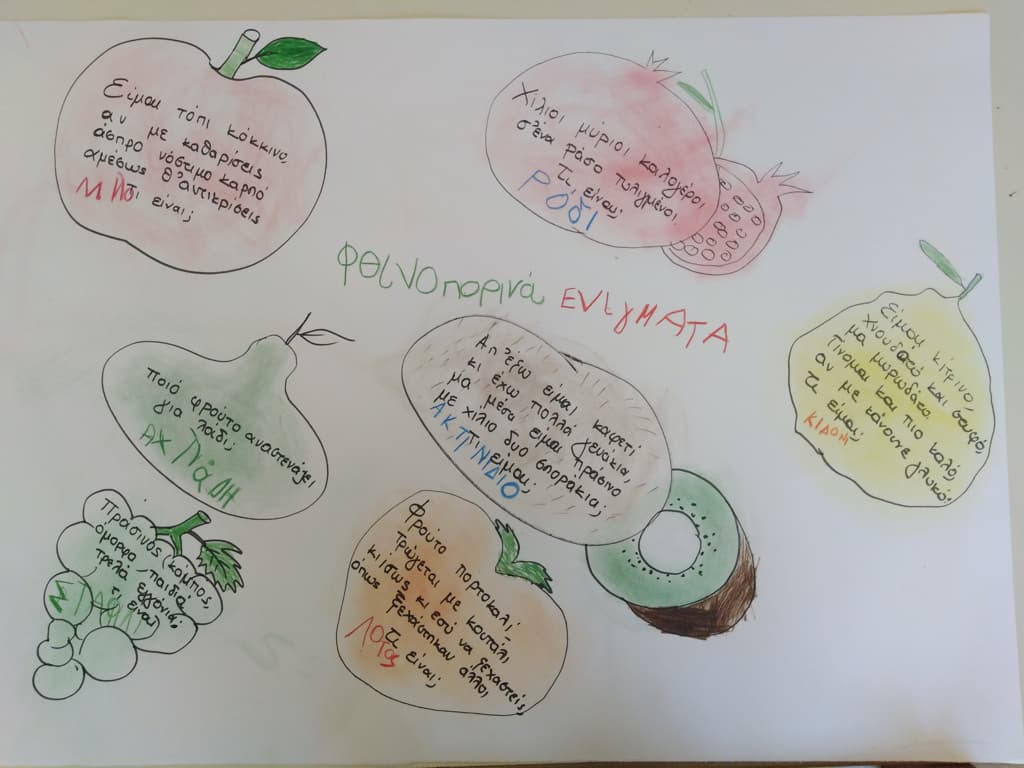 Είμαι τόπι κόκκινο,
αν με καθαρίσεις
άσπρο νόστιμο καρπό
αμέσως θ' αντικρίσεις
Τι είναι;
ΜΗΛΟ
Χίλιοι μύριοι καλογέροι
σ' ένα ράσο τυλιγμένοι
Τι είναι;
ΡΟΔΙ
φθινοπορινά ΕΝΙΓΜΑΤΑ
Είμαι κίτρινο,
χνουδωτό και στυφό,
μα μυρωδάτο.
Γίνομαι και πιο καλό,
αν με κάνουνε γλυκό!
Τι είμαι;
ΚΙΔΟΝΙ
ποιό φρούτο αναστενάζει
για λάδι;
ΑΧ ΛΑΔΗ
Απ' έξω είμαι καφετί
κι έχω πολλά γενάκια,
μα μέσα είμαι πράσινο
με χίλιο δυο σποράκια;
Τι είμαι;
ΑΚΤΙΝΙΔΙΟ
Πράσινος κάμπος,
όμορφα παιδιά
τρελά εγγόνια,
τι είναι
Φρούτο πορτοκαλί
τρώγεται με κουτάλι,
κι ίσως κι εσύ να ξεχαστείς
όπως ξεχάστηκαν άλλοι
τι είναι;
Λοτος